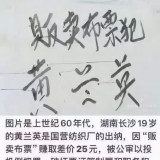 贩卖布票犯
黄兰英
图片是上世纪60年代，湖南长沙19岁
的黄兰英是国营纺织厂的出纳，因“贩
卖布票”赚取差价25元，被公审以投